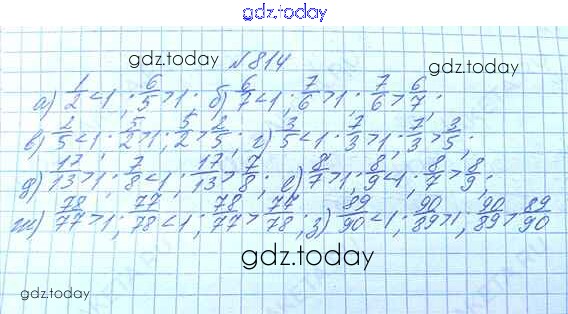 gdz.today
gdz.today №814
а) 1/2 < 1; 6/5 > 1; б) 6/7 < 1; 7/6 > 1; 7/6 > 6/7;
в) 2/5 < 1; 5/2 > 1; 5/2 > 2/5; г) 3/5 < 1; 7/3 > 1; 7/3 > 3/5;
д) 17/13 > 1; 7/8 < 1; 17/13 > 7/8; е) 8/7 > 1; 8/9 < 1; 8/7 > 8/9;
ж) 78/77 > 1; 77/78 < 1; 78/77 > 77/78; з) 89/90 < 1; 90/89 > 1; 90/89 > 89/90
gdz.today
gdz.today